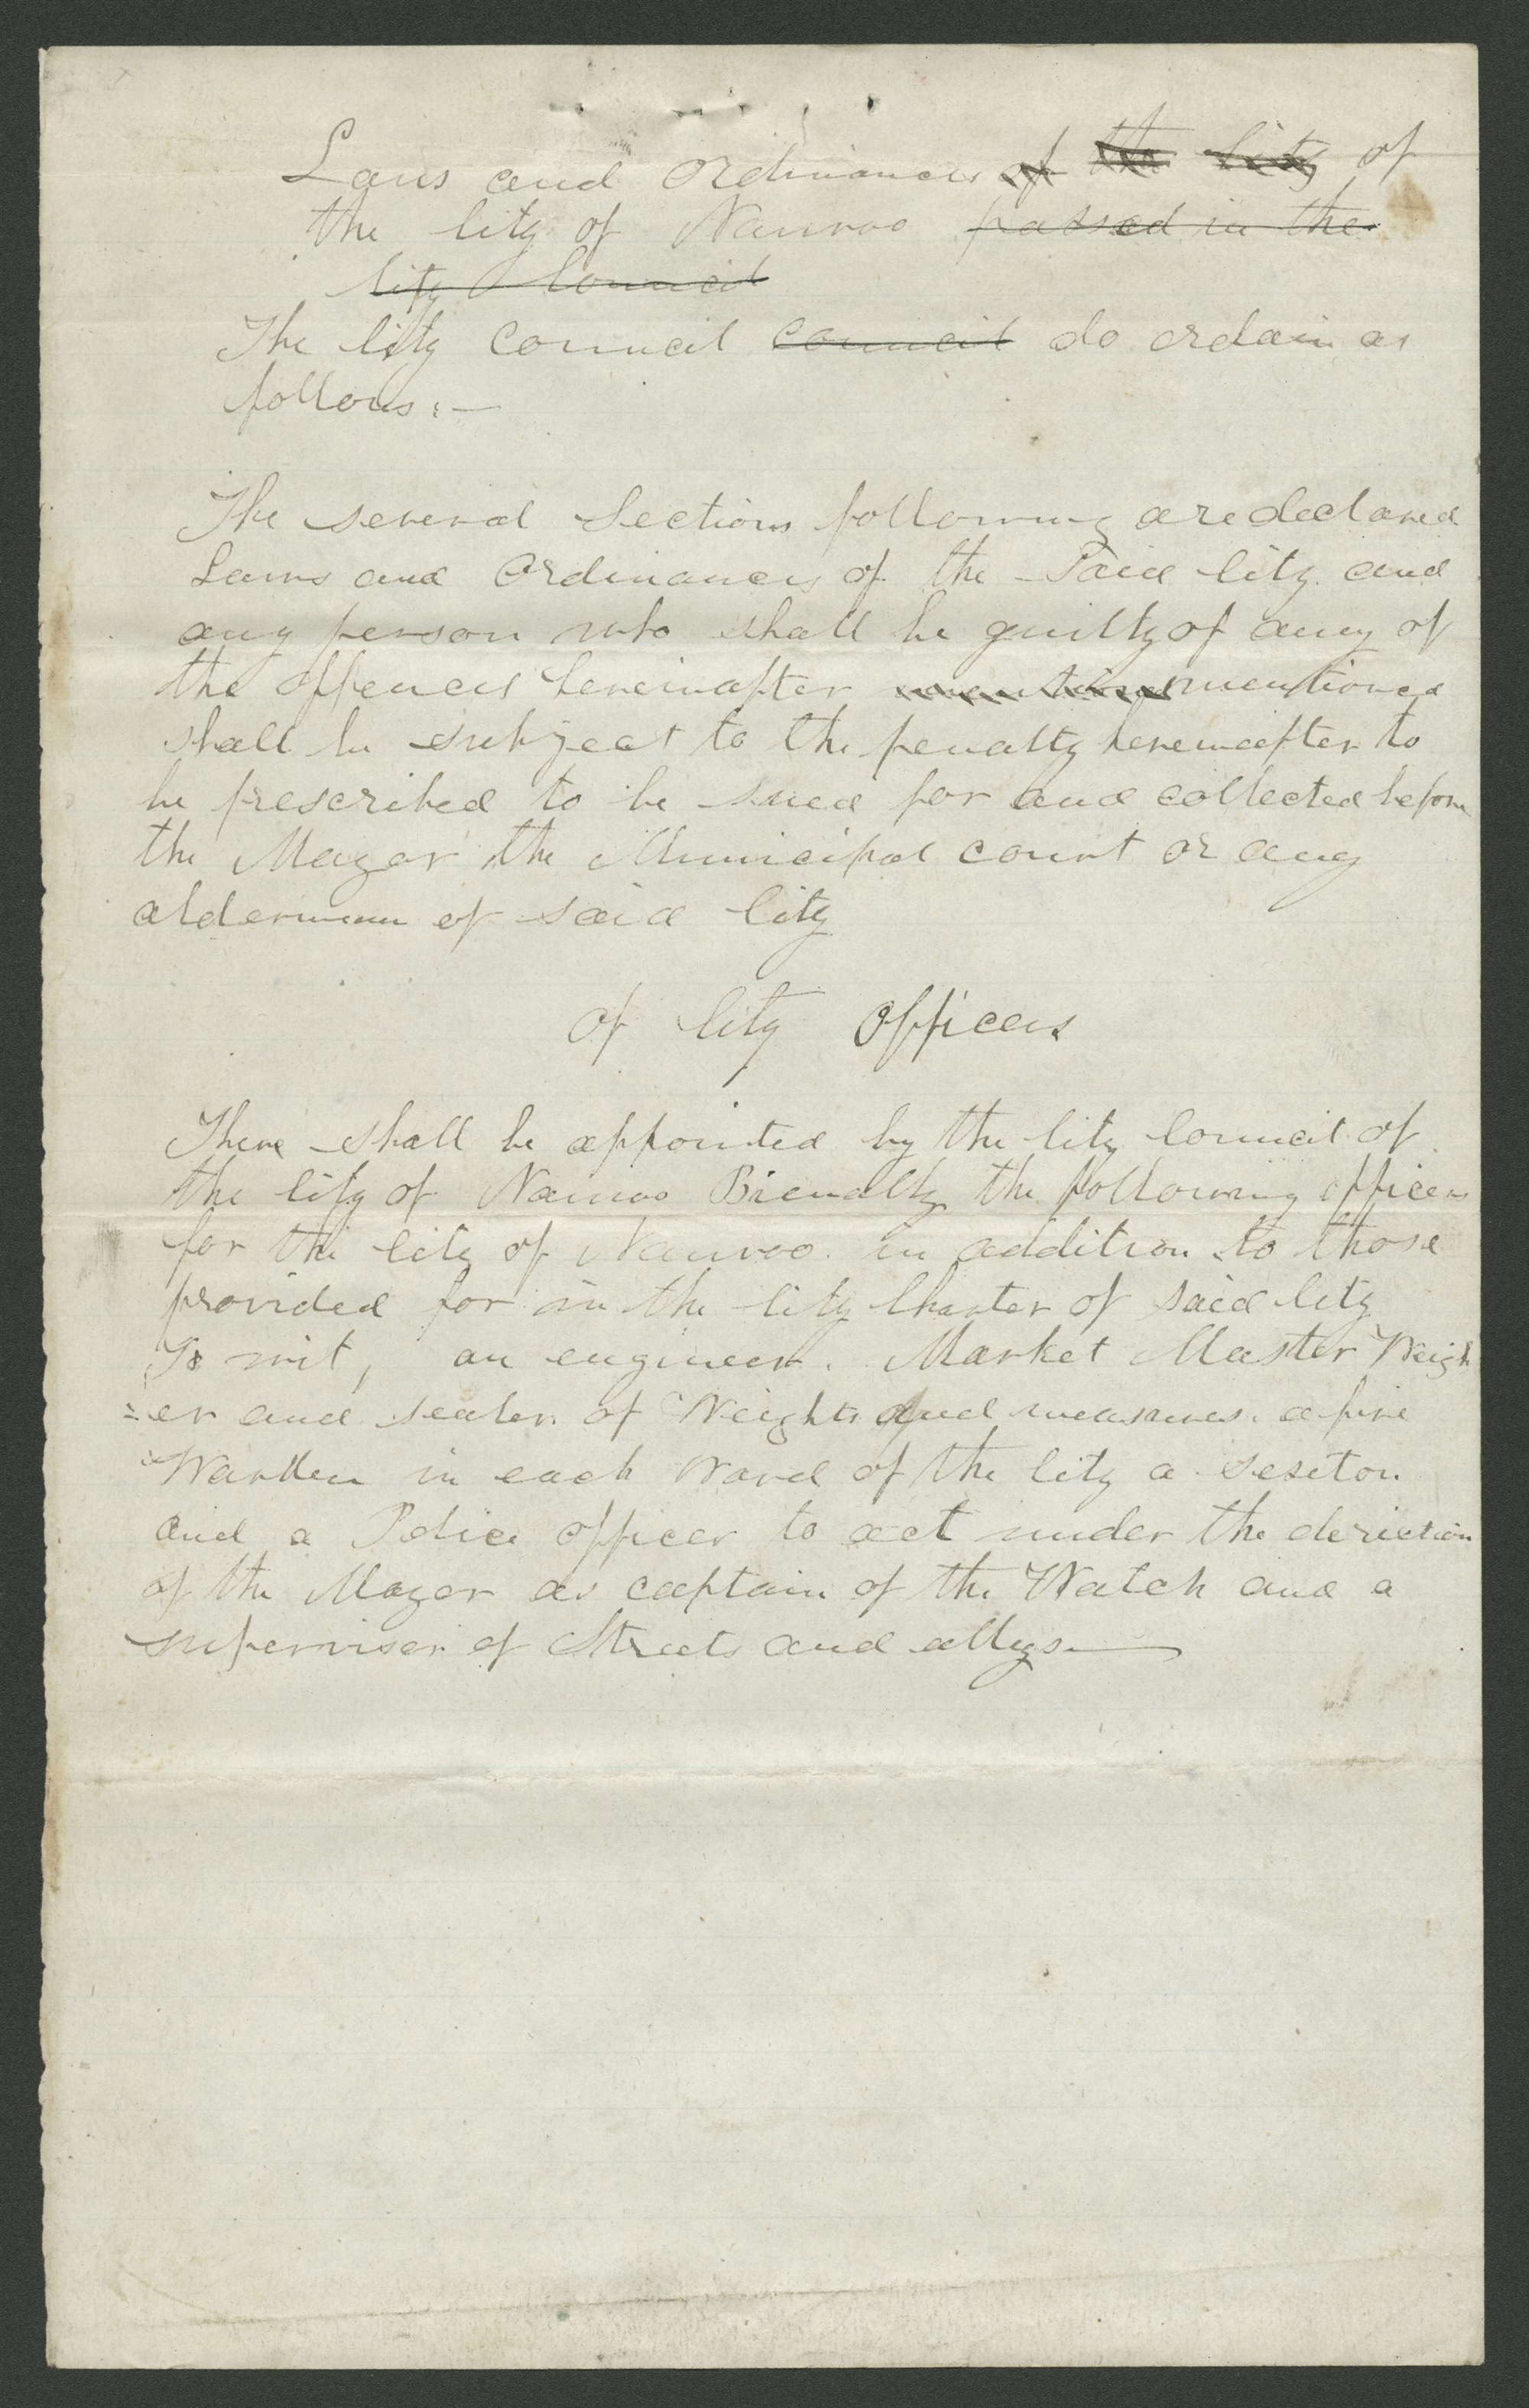 Laws and Ordinances of the City of
the City of Nauvoo passed in the
City Council
The City Council council do ordain as
follows:—
The several Sections following are declared
Laws and Ordinances of the Said City and
any person who shall be guilty of any of
the offences hereinafter mentioned mentioned
shall be subject to the penalty hereinafter to
be prescribed to be sued for and collected before
the Mayor the Municipal court or any
alderman of said City
Of City Officers
There shall be appointed by the City Council of
the City of Nauvoo Bienally the following officers
for the City of Nauvoo in addition to those
provided for in the City Charter of said City
To wit, an engineer. Market Master Weigh
=er and sealer of Weights and measures. a fire
Warden in each Ward of the City a sexton
and a Police officer to act under the deriection
of the Mayor as captain of the Watch and a
superviser of Streets and allys—